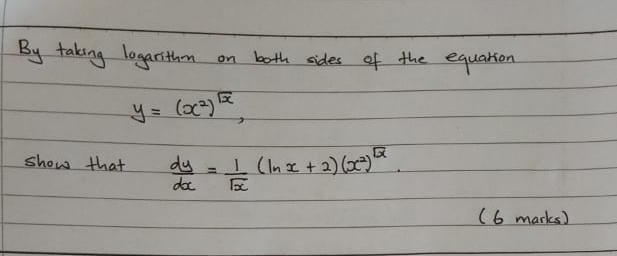 By taking logarithm on both sides of the equation
y = (x²)^√x,
show that dy/dx = 1/√x (ln x + 2)(x²)^√x.
(6 marks)